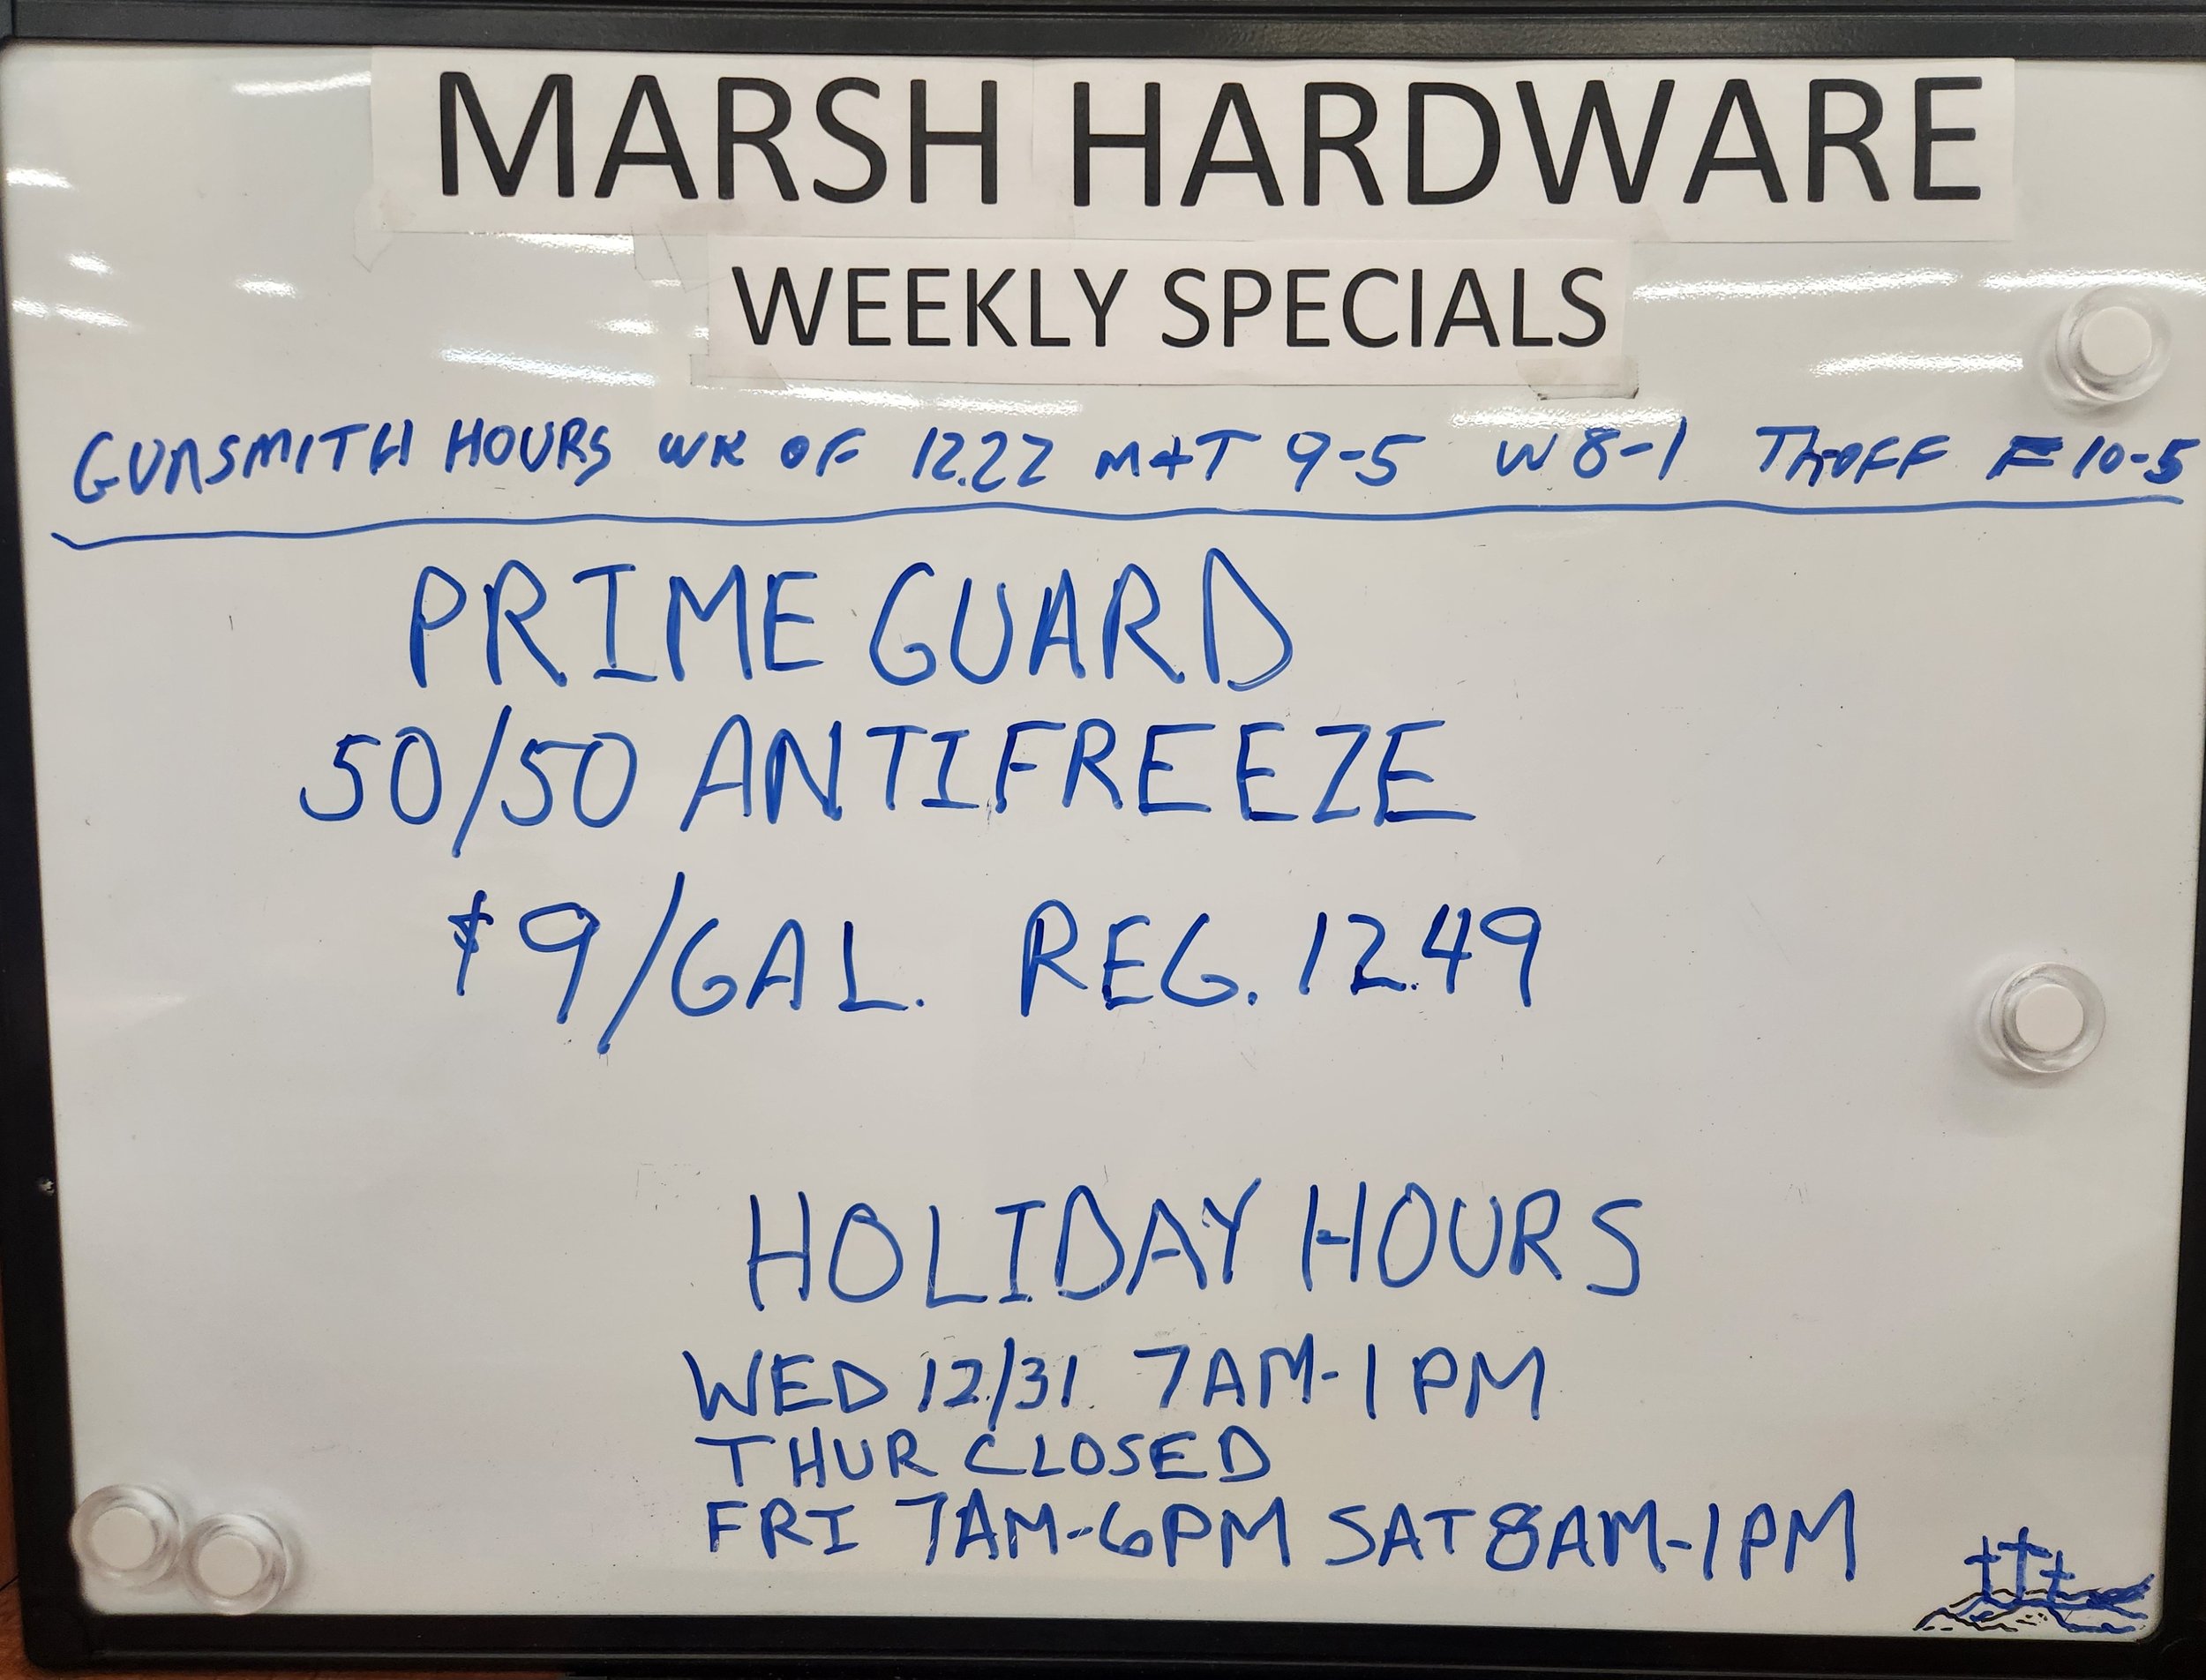 MARSH HARDWARE
WEEKLY SPECIALS
GUNSMITH HOURS WK OF 12.22 M+T 9-5 W 8-1 Th-OFF F 10-5
PRIME GUARD
50/50 ANTIFREEZE
$9/GAL. REG. 12.49
HOLIDAY HOURS
WED 12/31 7AM-1PM
THUR CLOSED
FRI 7AM-6PM SAT 8AM-1PM